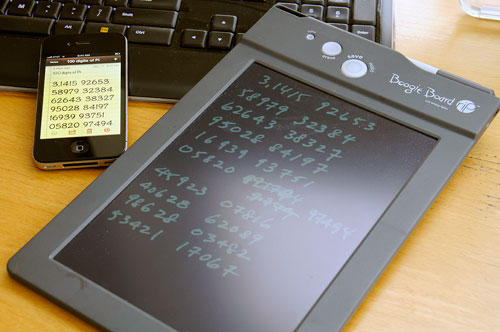 100 digits of Pi
100 digits of Pi
3.1415 92653
58979 32384
62643 38327
95028 84197
16939 93751
05820 97494
Alt
Ctrl
save
erase
Boogie Board
3.1415 92653
58979 32384
62643 38327
95028 84197
16939 93751
05820 97494
45923 07816
40628 62089
98628 03482
53421 17067